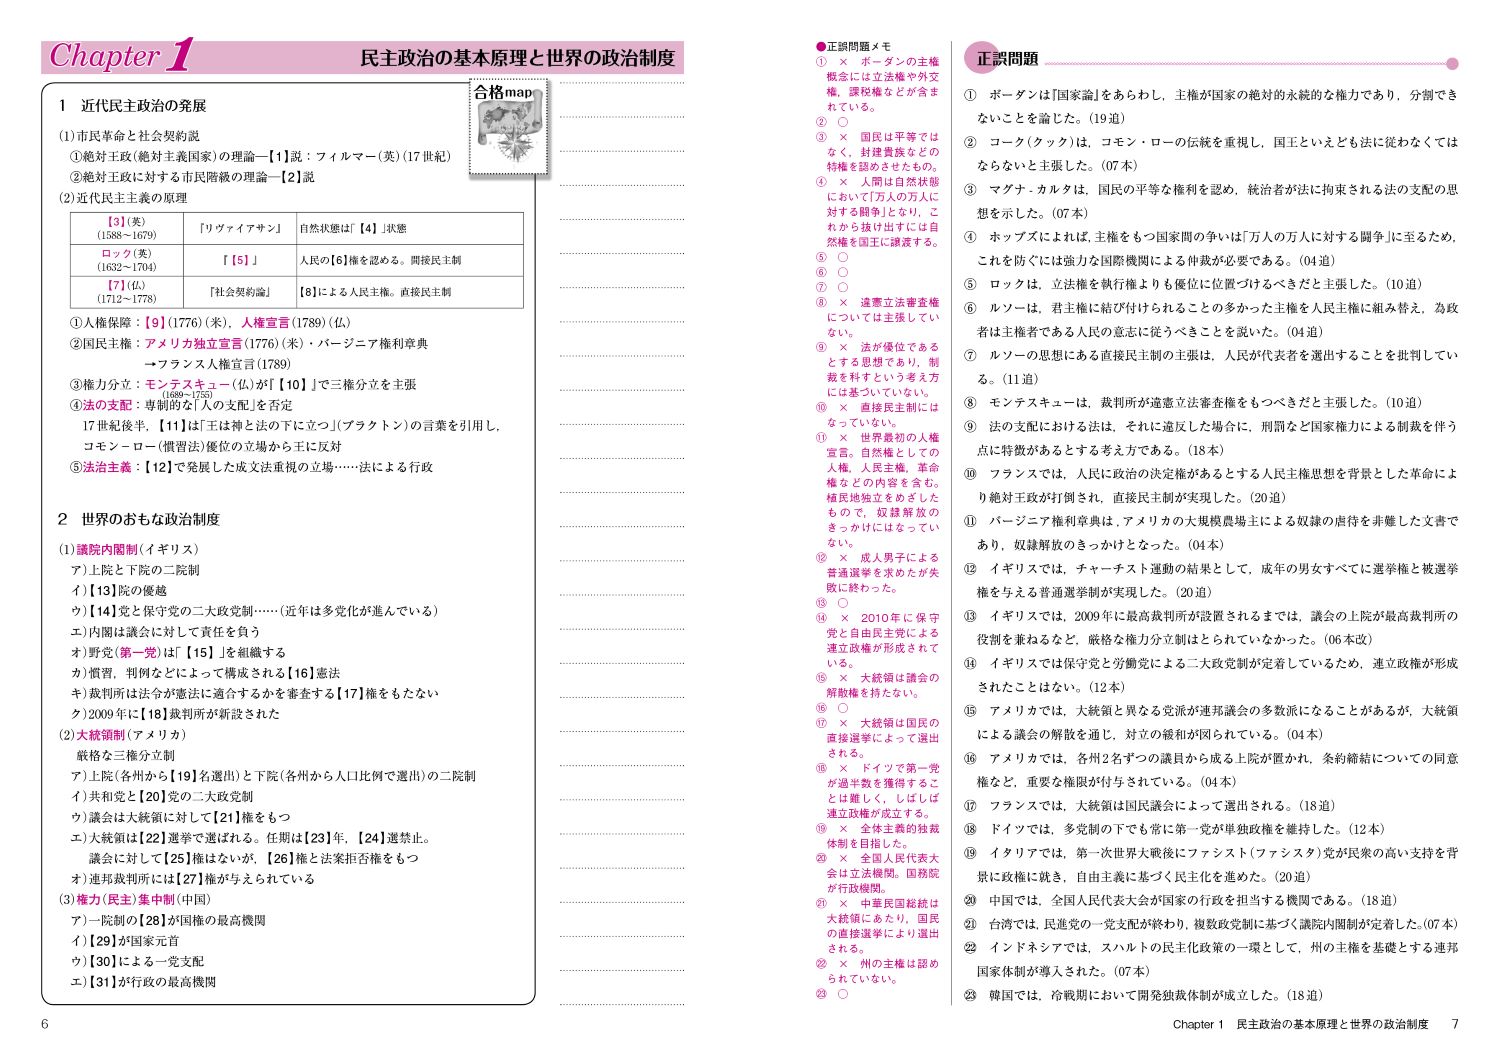 Chapter 1
民主政治の基本原理と世界の政治制度
合格map
1　近代民主政治の発展
(1)市民革命と社会契約説
①絶対王政(絶対主義国家)の理論―【1】説：フィルマー(英)(17世紀)
②絶対王政に対する市民階級の理論―【2】説
(2)近代民主主義の原理
【3】(英)
(1588～1679)
『リヴァイアサン』
自然状態は「【4】」状態
ロック(英)
(1632～1704)
『【5】』
人民の【6】権を認める。間接民主制
【7】(仏)
(1712～1778)
『社会契約論』
【8】による人民主権。直接民主制
①人権保障：【9】(1776)(米)，人権宣言(1789)(仏)
②国民主権：アメリカ独立宣言(1776)(米)・バージニア権利章典
→フランス人権宣言(1789)
③権力分立：モンテスキュー(仏)が『【10】』で三権分立を主張
(1689～1755)
④法の支配：専制的な「人の支配」を否定
17世紀後半，【11】は「王は神と法の下に立つ」(ブラクトン)の言葉を引用し，
コモン－ロー(慣習法)優位の立場から王に反対
⑤法治主義：【12】で発展した成文法重視の立場……法による行政
2　世界のおもな政治制度
(1)議院内閣制(イギリス)
ア)上院と下院の二院制
イ)【13】院の優越
ウ)【14】党と保守党の二大政党制……(近年は多党化が進んでいる)
エ)内閣は議会に対して責任を負う
オ)野党(第一党)は「【15】」を組織する
カ)慣習，判例などによって構成される【16】憲法
キ)裁判所は法令が憲法に適合するかを審査する【17】権をもたない
ク)2009年に【18】裁判所が新設された
(2)大統領制(アメリカ)
厳格な三権分立制
ア)上院(各州から【19】名選出)と下院(各州から人口比例で選出)の二院制
イ)共和党と【20】党の二大政党制
ウ)議会は大統領に対して【21】権をもつ
エ)大統領は【22】選挙で選ばれる。任期は【23】年，【24】選禁止。
議会に対して【25】権はないが，【26】権と法案拒否権をもつ
オ)連邦裁判所には【27】権が与えられている
(3)権力(民主)集中制(中国)
ア)一院制の【28】が国権の最高機関
イ)【29】が国家元首
ウ)【30】による一党支配
エ)【31】が行政の最高機関
6
●正誤問題メモ
①　×　ボーダンの主権
概念には立法権や外交
権，課税権などが含ま
れている。
②　○
③　×　国民は平等では
なく，封建貴族などの
特権を認めさせたもの。
④　×　人間は自然状態
において「万人の万人に
対する闘争」となり，こ
れから抜け出すには自
然権を国王に譲渡する。
⑤　○
⑥　○
⑦　○
⑧　×　違憲立法審査権
については主張してい
ない。
⑨　×　法が優位である
とする思想であり，制
裁を科すという考え方
には基づいていない。
⑩　×　直接民主制には
なっていない。
⑪　×　世界最初の人権
宣言。自然権としての
人権，人民主権，革命
権などの内容を含む。
植民地独立をめざした
もので，奴隷解放の
きっかけにはなってい
ない。
⑫　×　成人男子による
普通選挙を求めたが失
敗に終わった。
⑬　○
⑭　×　2010年に保守
党と自由民主党による
連立政権が形成されて
いる。
⑮　×　大統領は議会の
解散権を持たない。
⑯　○
⑰　×　大統領は国民の
直接選挙によって選出
される。
⑱　×　ドイツで第一党
が過半数を獲得するこ
とは難しく，しばしば
連立政権が成立する。
⑲　×　全体主義的独裁
体制を目指した。
⑳　×　全国人民代表大
会は立法機関。国務院
が行政機関。
㉑　×　中華民国総統は
大統領にあたり，国民
の直接選挙により選出
される。
㉒　×　州の主権は認め
られていない。
㉓　○
正誤問題
①　ボーダンは『国家論』をあらわし，主権が国家の絶対的永続的な権力であり，分割でき
ないことを論じた。(19追)
②　コーク(クック)は，コモン・ローの伝統を重視し，国王といえども法に従わなくては
ならないと主張した。(07本)
③　マグナ‐カルタは，国民の平等な権利を認め，統治者が法に拘束される法の支配の思
想を示した。(07本)
④　ホッブズによれば，主権をもつ国家間の争いは「万人の万人に対する闘争」に至るため，
これを防ぐには強力な国際機関による仲裁が必要である。(04追)
⑤　ロックは，立法権を執行権よりも優位に位置づけるべきだと主張した。(10追)
⑥　ルソーは，君主権に結び付けられることの多かった主権を人民主権に組み替え，為政
者は主権者である人民の意志に従うべきことを説いた。(04追)
⑦　ルソーの思想にある直接民主制の主張は，人民が代表者を選出することを批判してい
る。(11追)
⑧　モンテスキューは，裁判所が違憲立法審査権をもつべきだと主張した。(10追)
⑨　法の支配における法は，それに違反した場合に，刑罰など国家権力による制裁を伴う
点に特徴があるとする考え方である。(18本)
⑩　フランスでは，人民に政治の決定権があるとする人民主権思想を背景とした革命によ
り絶対王政が打倒され，直接民主制が実現した。(20追)
⑪　バージニア権利章典は，アメリカの大規模農場主による奴隷の虐待を非難した文書で
あり，奴隷解放のきっかけとなった。(04本)
⑫　イギリスでは，チャーチスト運動の結果として，成年の男女すべてに選挙権と被選挙
権を与える普通選挙制が実現した。(20追)
⑬　イギリスでは，2009年に最高裁判所が設置されるまでは，議会の上院が最高裁判所の
役割を兼ねるなど，厳格な権力分立制はとられていなかった。(06本改)
⑭　イギリスでは保守党と労働党による二大政党制が定着しているため，連立政権が形成
されたことはない。(12本)
⑮　アメリカでは，大統領と異なる党派が連邦議会の多数派になることがあるが，大統領
による議会の解散を通じ，対立の緩和が図られている。(04本)
⑯　アメリカでは，各州2名ずつの議員から成る上院が置かれ，条約締結についての同意
権など，重要な権限が付与されている。(04本)
⑰　フランスでは，大統領は国民議会によって選出される。(18追)
⑱　ドイツでは，多党制の下でも常に第一党が単独政権を維持した。(12本)
⑲　イタリアでは，第一次世界大戦後にファシスト(ファシスタ)党が民衆の高い支持を背
景に政権に就き，自由主義に基づく民主化を進めた。(20追)
⑳　中国では，全国人民代表大会が国家の行政を担当する機関である。(18追)
㉑　台湾では，民進党の一党支配が終わり，複数政党制に基づく議院内閣制が定着した。(07本)
㉒　インドネシアでは，スハルトの民主化政策の一環として，州の主権を基礎とする連邦
国家体制が導入された。(07本)
㉓　韓国では，冷戦期において開発独裁体制が成立した。(18追)
Chapter 1　民主政治の基本原理と世界の政治制度　7